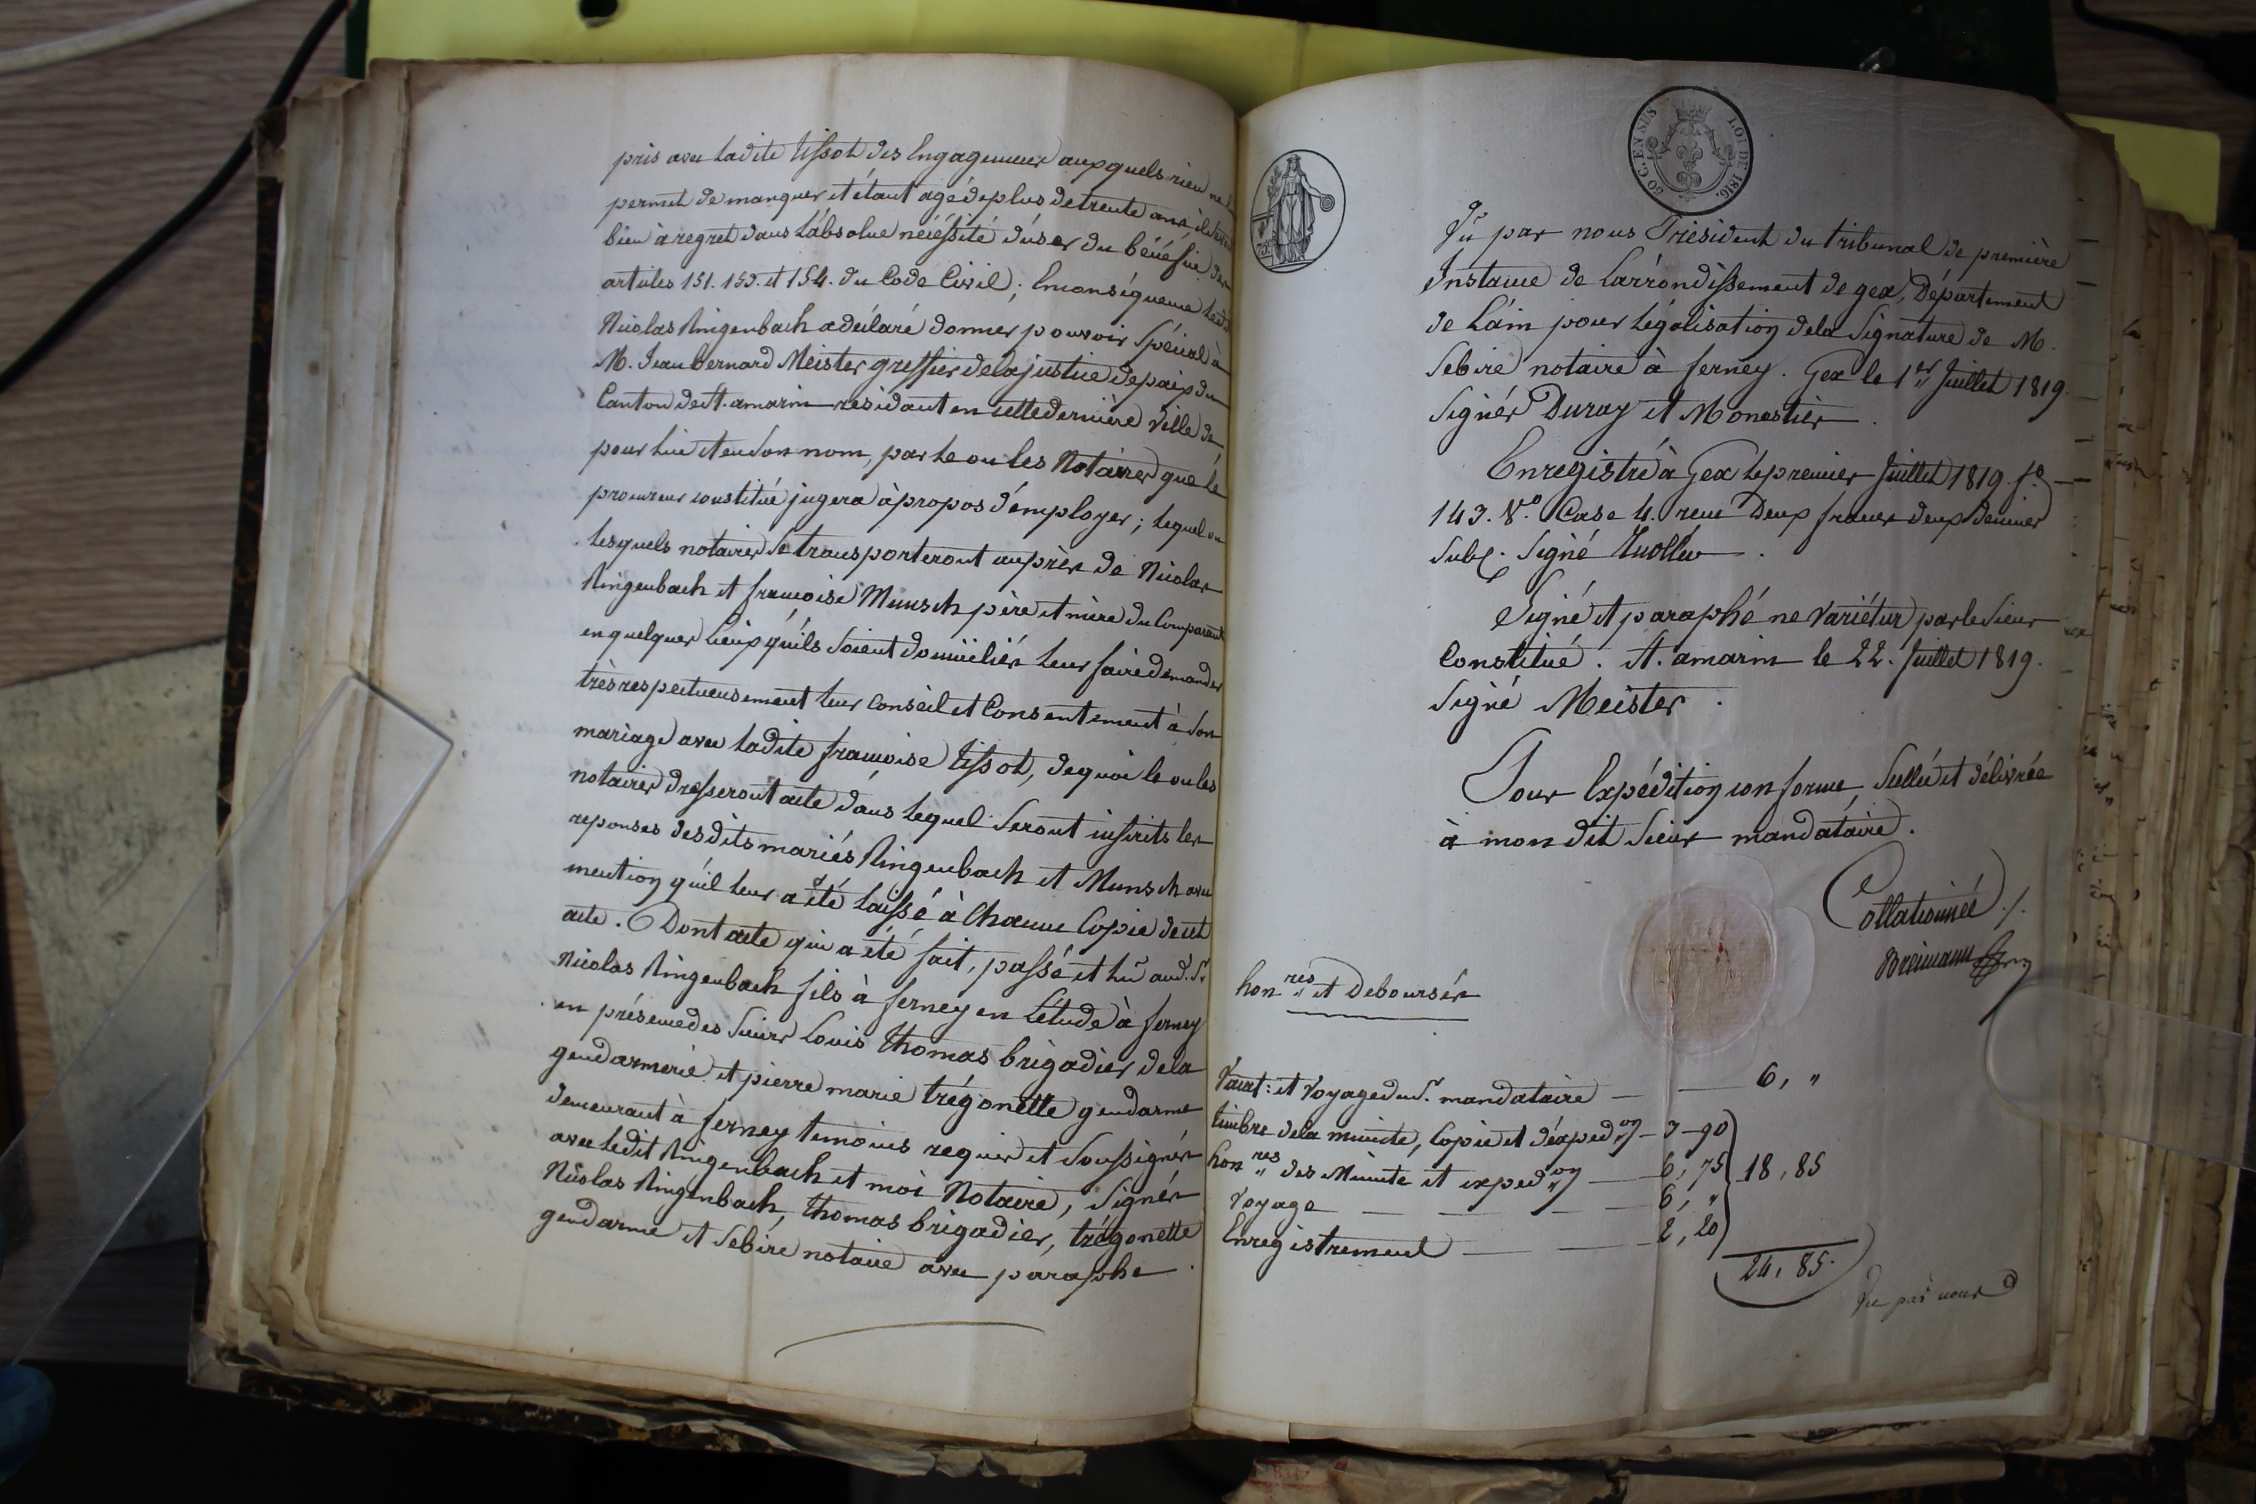 pris avec ladite tissot des Engagemens auxquels rien ne
permet de manquer et étant agé de plus de trente ans il
bien à regret dans l'absolue nécéssité d'user du bénéfice des
articles 151. 153. et 154. du Code Civil; En conséquence ledit
Nicolas Ringenbach a déclaré donner pouvoir Spécial à
M. Jean bernard Meister greffier de la justice de paix du
Canton de St. amarin résidant en cette dernière Ville de
pour lui et en son nom, par le ou les Notaires que le
procureur constitué jugera à propos d'employer; lequel ou
lesquels notaires se transporteront auprès de Nicolas
Ringenbach et francoise Munsch père et mère du Comparant
en quelques lieux qu'ils soient domiciliés leur faire demander
très respectueusement leur Conseil et Consentement à son
mariage avec ladite francoise tissot, de quoi le ou les
notaires dresseront acte dans lequel seront inscrits les
reponses desdits mariés Ringenbach et Munsch avec
mention qu'il leur a été laissé à Chacun Copie de cet
acte. Dont acte qui a été fait, passé et lu aud. Sr.
Nicolas Ringenbach fils à ferney en l'étude à ferney
en présence des Sieurs Louis thomas brigadier de la
gendarmerie et pierre marie trégonette gendarme
demeurant à ferney temoins requis et Soussignés
avec ledit Ringenbach et moi Notaire, Signés
Nicolas Ringenbach, thomas brigadier, trégonette
gendarme et Sebire notaire avec paraphe.
50 C. EN SUS
LOI DE 1816.
Vu par nous Président du tribunal de première
Instance de l'arrondissement de gex, Département
de l'ain pour légalisation de la Signature de M.
Sebire notaire à ferney. Gex le 1er Juillet 1819.
Signés Duray et Monastier.
Enregistré à Gex le premier Juillet 1819. fo.
143. Vo. Case 4. recu Deux francs deux decimes
Subv. Signé
Signé et paraphé ne Variétur par le Sieur
Constitué. St. amarin le 22. Juillet 1819.
Signé Meister.
Pour Expédition conforme, Scellée et délivrée
à mon dit Sieur mandataire.
Collationnée
hon res et Deboursés
Vacat: et Voyage du S. mandataire — 6, "
timbre de la minute, Copie et d'expedon — 3 - 90
honres des Minute et expedon — 6, 75 18, 85
Voyage — 6, "
Enregistrement — 2, 20
24, 85.
Vu par nous